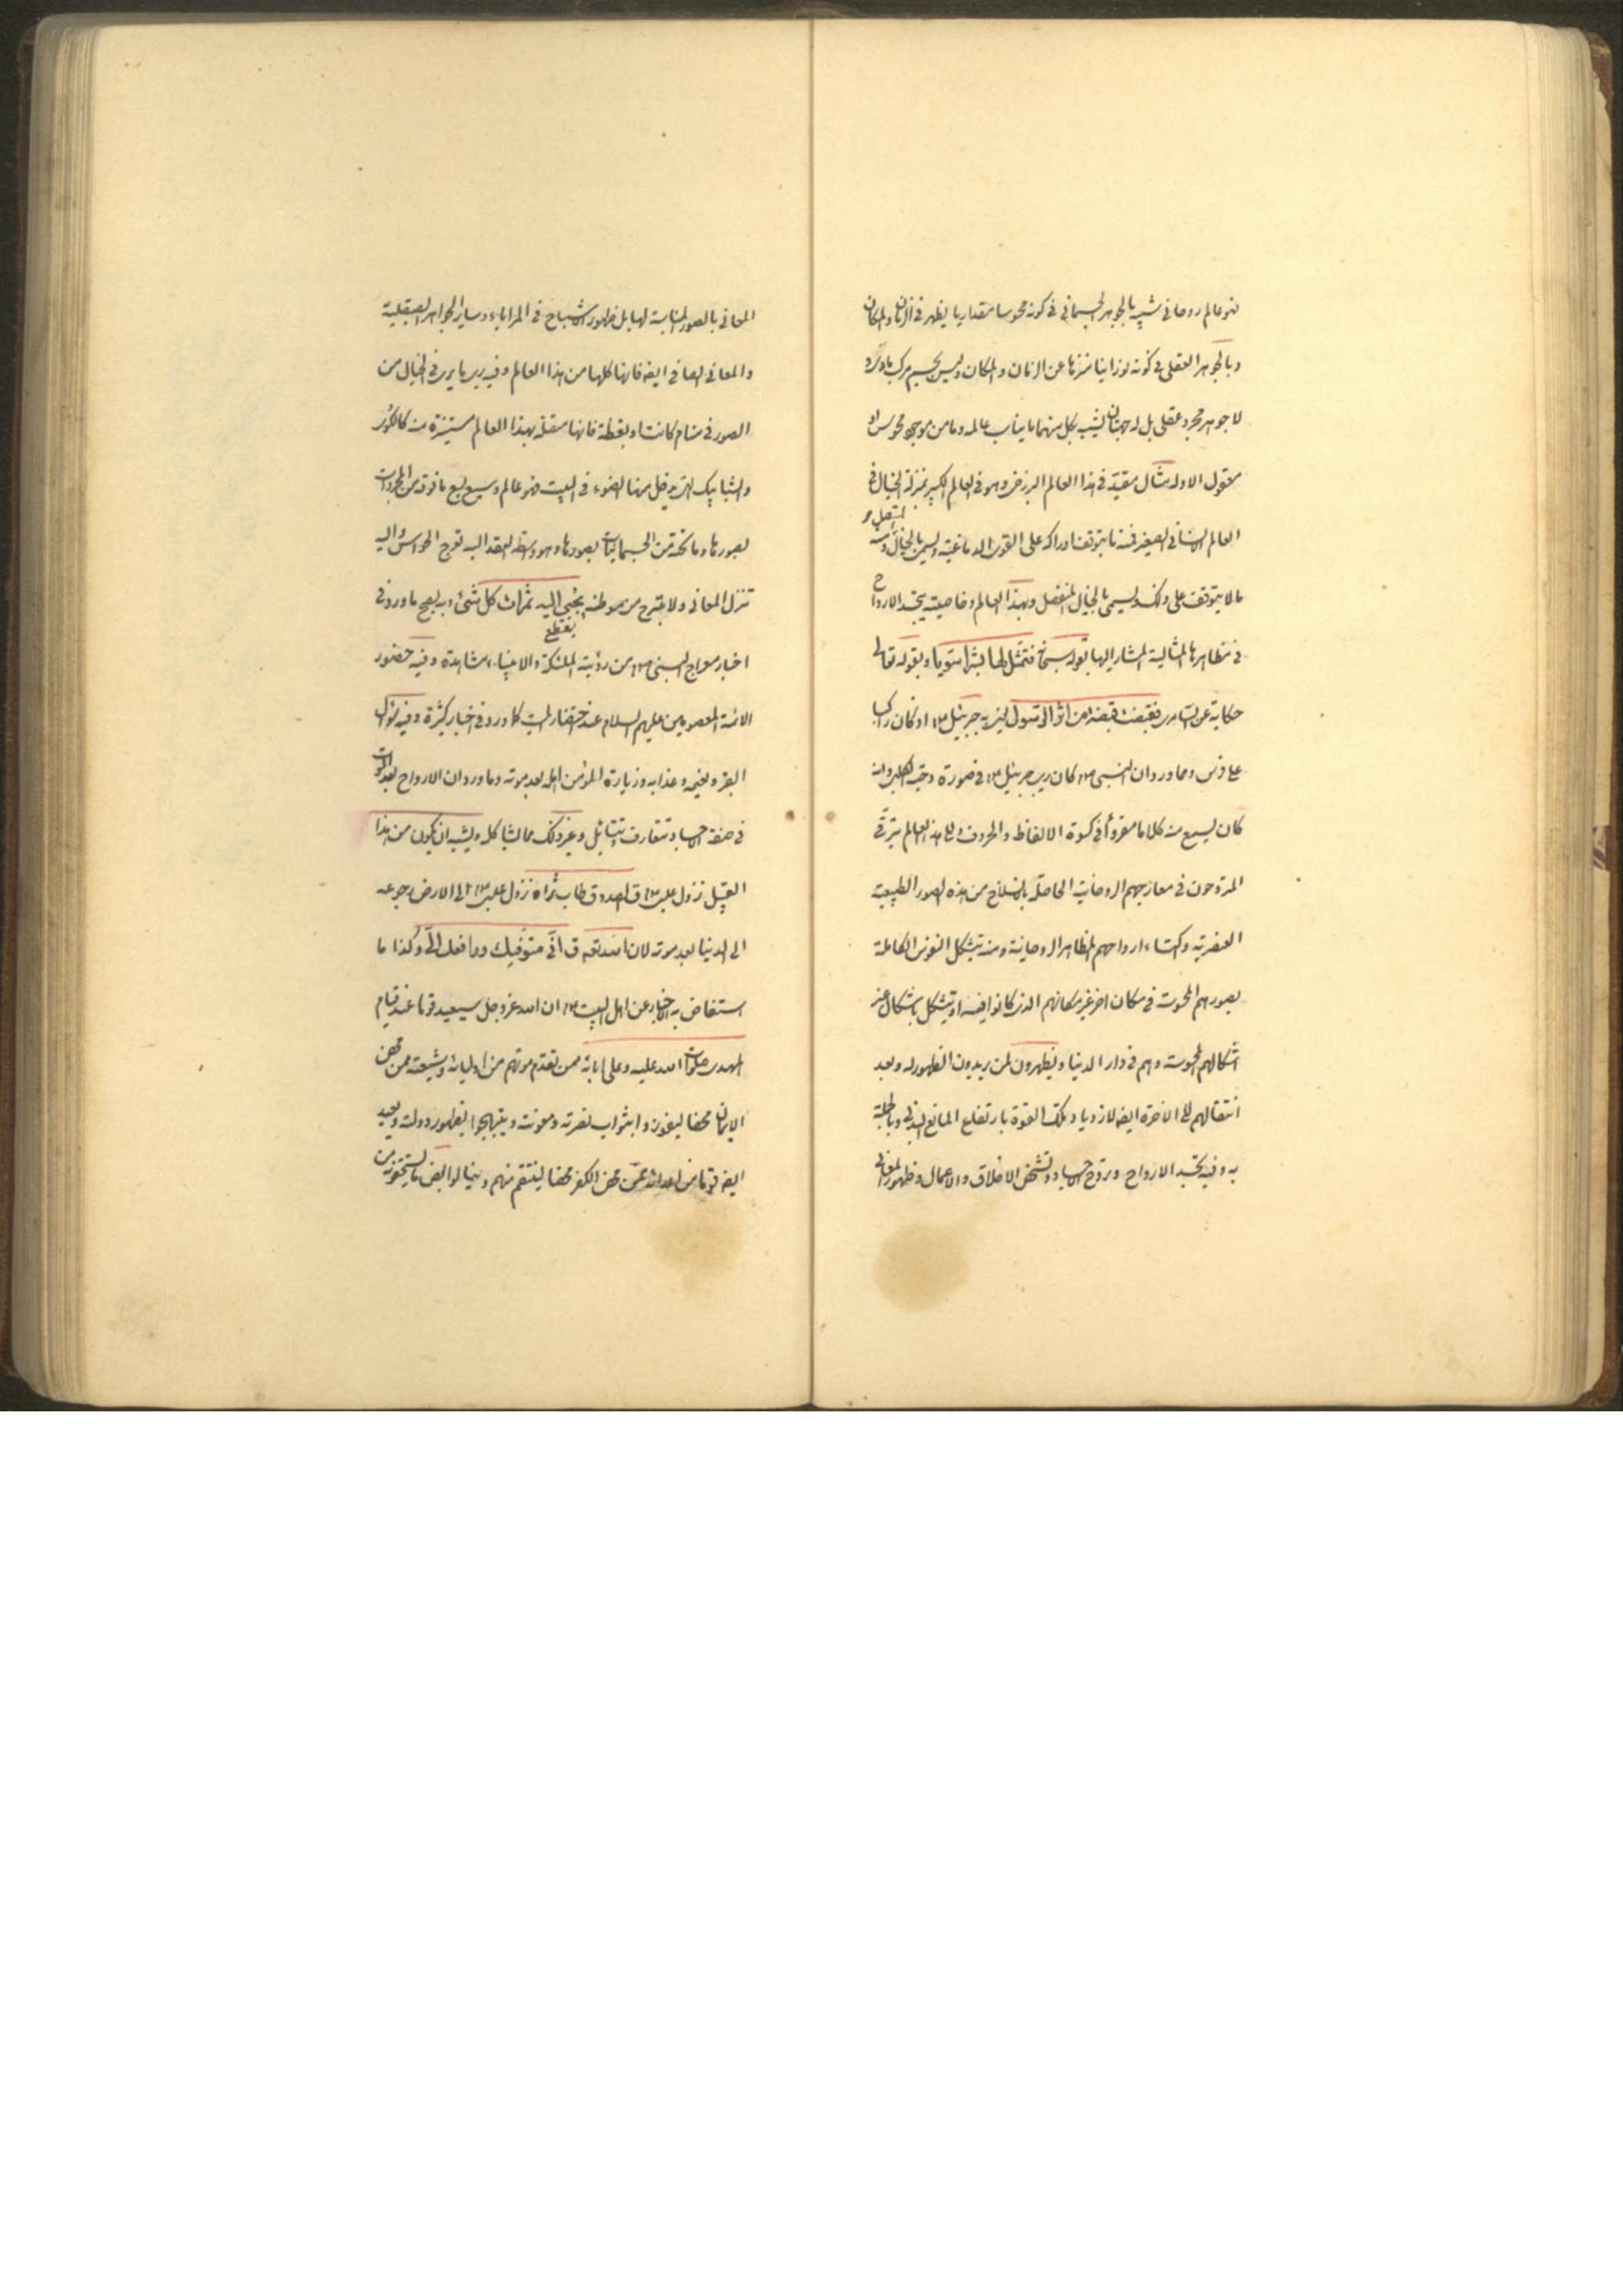 فهو عالم روحاني شبيه بالجوهر الجسماني في كونه محسوسا مقداريا يظهر في الزمان والمكان
وبالجوهر العقلي في كونه نورانيا منزها عن الزمان والمكان وليس بجسم مركب مادي و
لا جوهر مجرد عقلي بل له جهتان يشبه بكل منهما ما يناسب عالمه وما من موجود محسوس او
معقول الا وله مثال مقيد في هذا العالم البرزخي وهو في العالم الكبير بمنزلة الخيال في
العالم الانساني الصغير فمنه ما يتوقف ادراكه على القوى الدماغية ويسمى بالخيال المتصل ومنه
ما لا يتوقف على ذلك ويسمى بالخيال المنفصل وبهذا العالم وخاصيته يتجسد الارواح
في مظاهرها المثالية المشار اليها بقوله سبحانه فتمثل لها بشرا سويا وبقوله تعالى
حكاية عن السامري فقبضت قبضة من اثر الرسول يعني به جبرئيل ع اذ كان راكبا
على فرس ومما ورد ان النبي ص كان يرى جبرئيل ع في صورة دحية الكلبي وانه
كان يسمع منه كلاما مقروأ في كسوة الالفاظ والحروف والى هذا العالم يترقى
المتروحون في معارجهم الروحانية الحاصلة بالانسلاخ من هذه الصور الطبيعية
العنصرية واكتساء ارواحهم المظاهر الروحانية ومنه يتشكل النفوس الكاملة
بصورهم المحسوسة في مكان اخر غير مكانهم الذي كانوا فيه او يتشكل باشكال غير
اشكالهم المحسوسة وهم في دار الدنيا ويظهرون لمن يريدون الظهور له وبعد
انتقالهم الى الاخرة ايضا لازدياد تلك القوة بارتفاع المانع البدني وبالجملة
به وفيه تجسد الارواح وتروح الاجساد وتشخص الاخلاق والاعمال وظهور المعاني
المعاني بالصور المناسبة لها بل ظهور الاشباح في المرايا وساير الجواهر الصيقلية
والمعاني ايضا فانها كلها من هذا العالم وفيه يرى ما يرى في الخيال من
الصور في منام كانت او يقظة فانها متصلة بهذا العالم مستنيرة منه كالكوى
والشبابيك التي يدخل منها الضوء في البيت فهو عالم وسيع يسع ما فوقه من المجردات
بصورها وما تحته من الجسمانيات بصورها وهو واسطة العقد اليه تعرج الحواس واليه
تنزل المعاني ولا يبرح من موطنه يجبى اليه ثمرات كل شئ وبه يصح ما ورد في
اخبار معراج النبي ص من رؤية الملئكة والانبياء مشاهدة وفيه حضور
الائمة المعصومين عليهم السلام عند احتضار الميت كما ورد في اخبار كثيرة وفيه سؤال
القبر ونعيمه وعذابه وزيارة المؤمن اهله بعد موته وما ورد ان الارواح بعد الموت
في صفة الاجساد تتعارف وتتسائل وغير ذلك مما يشاكله ويشبه ان يكون من هذا
القبيل نزول عيسى ع ق الصدوق طاب ثراه نزول عيسى ع الى الارض رجوعه
الى الدنيا بعد موته لان الله تعه ق اني متوفيك ورافعك الي وكذا ما
استفاض به الاخبار عن اهل البيت ع ان الله عز وجل سيعيد قوما عند قيام
المهدي صلوات الله عليه وعلى ابائه ممن تقدم موتهم من اوليائه وشيعته ممن محض
الايمان محضا ليفوزوا بثواب نصرته ومعونته ويبتهجوا بظهور دولته ويعيد
ايضا قوما من اعدائه ممن محض الكفر محضا لينتقم منهم وينالوا بعض ما يستحقونه من